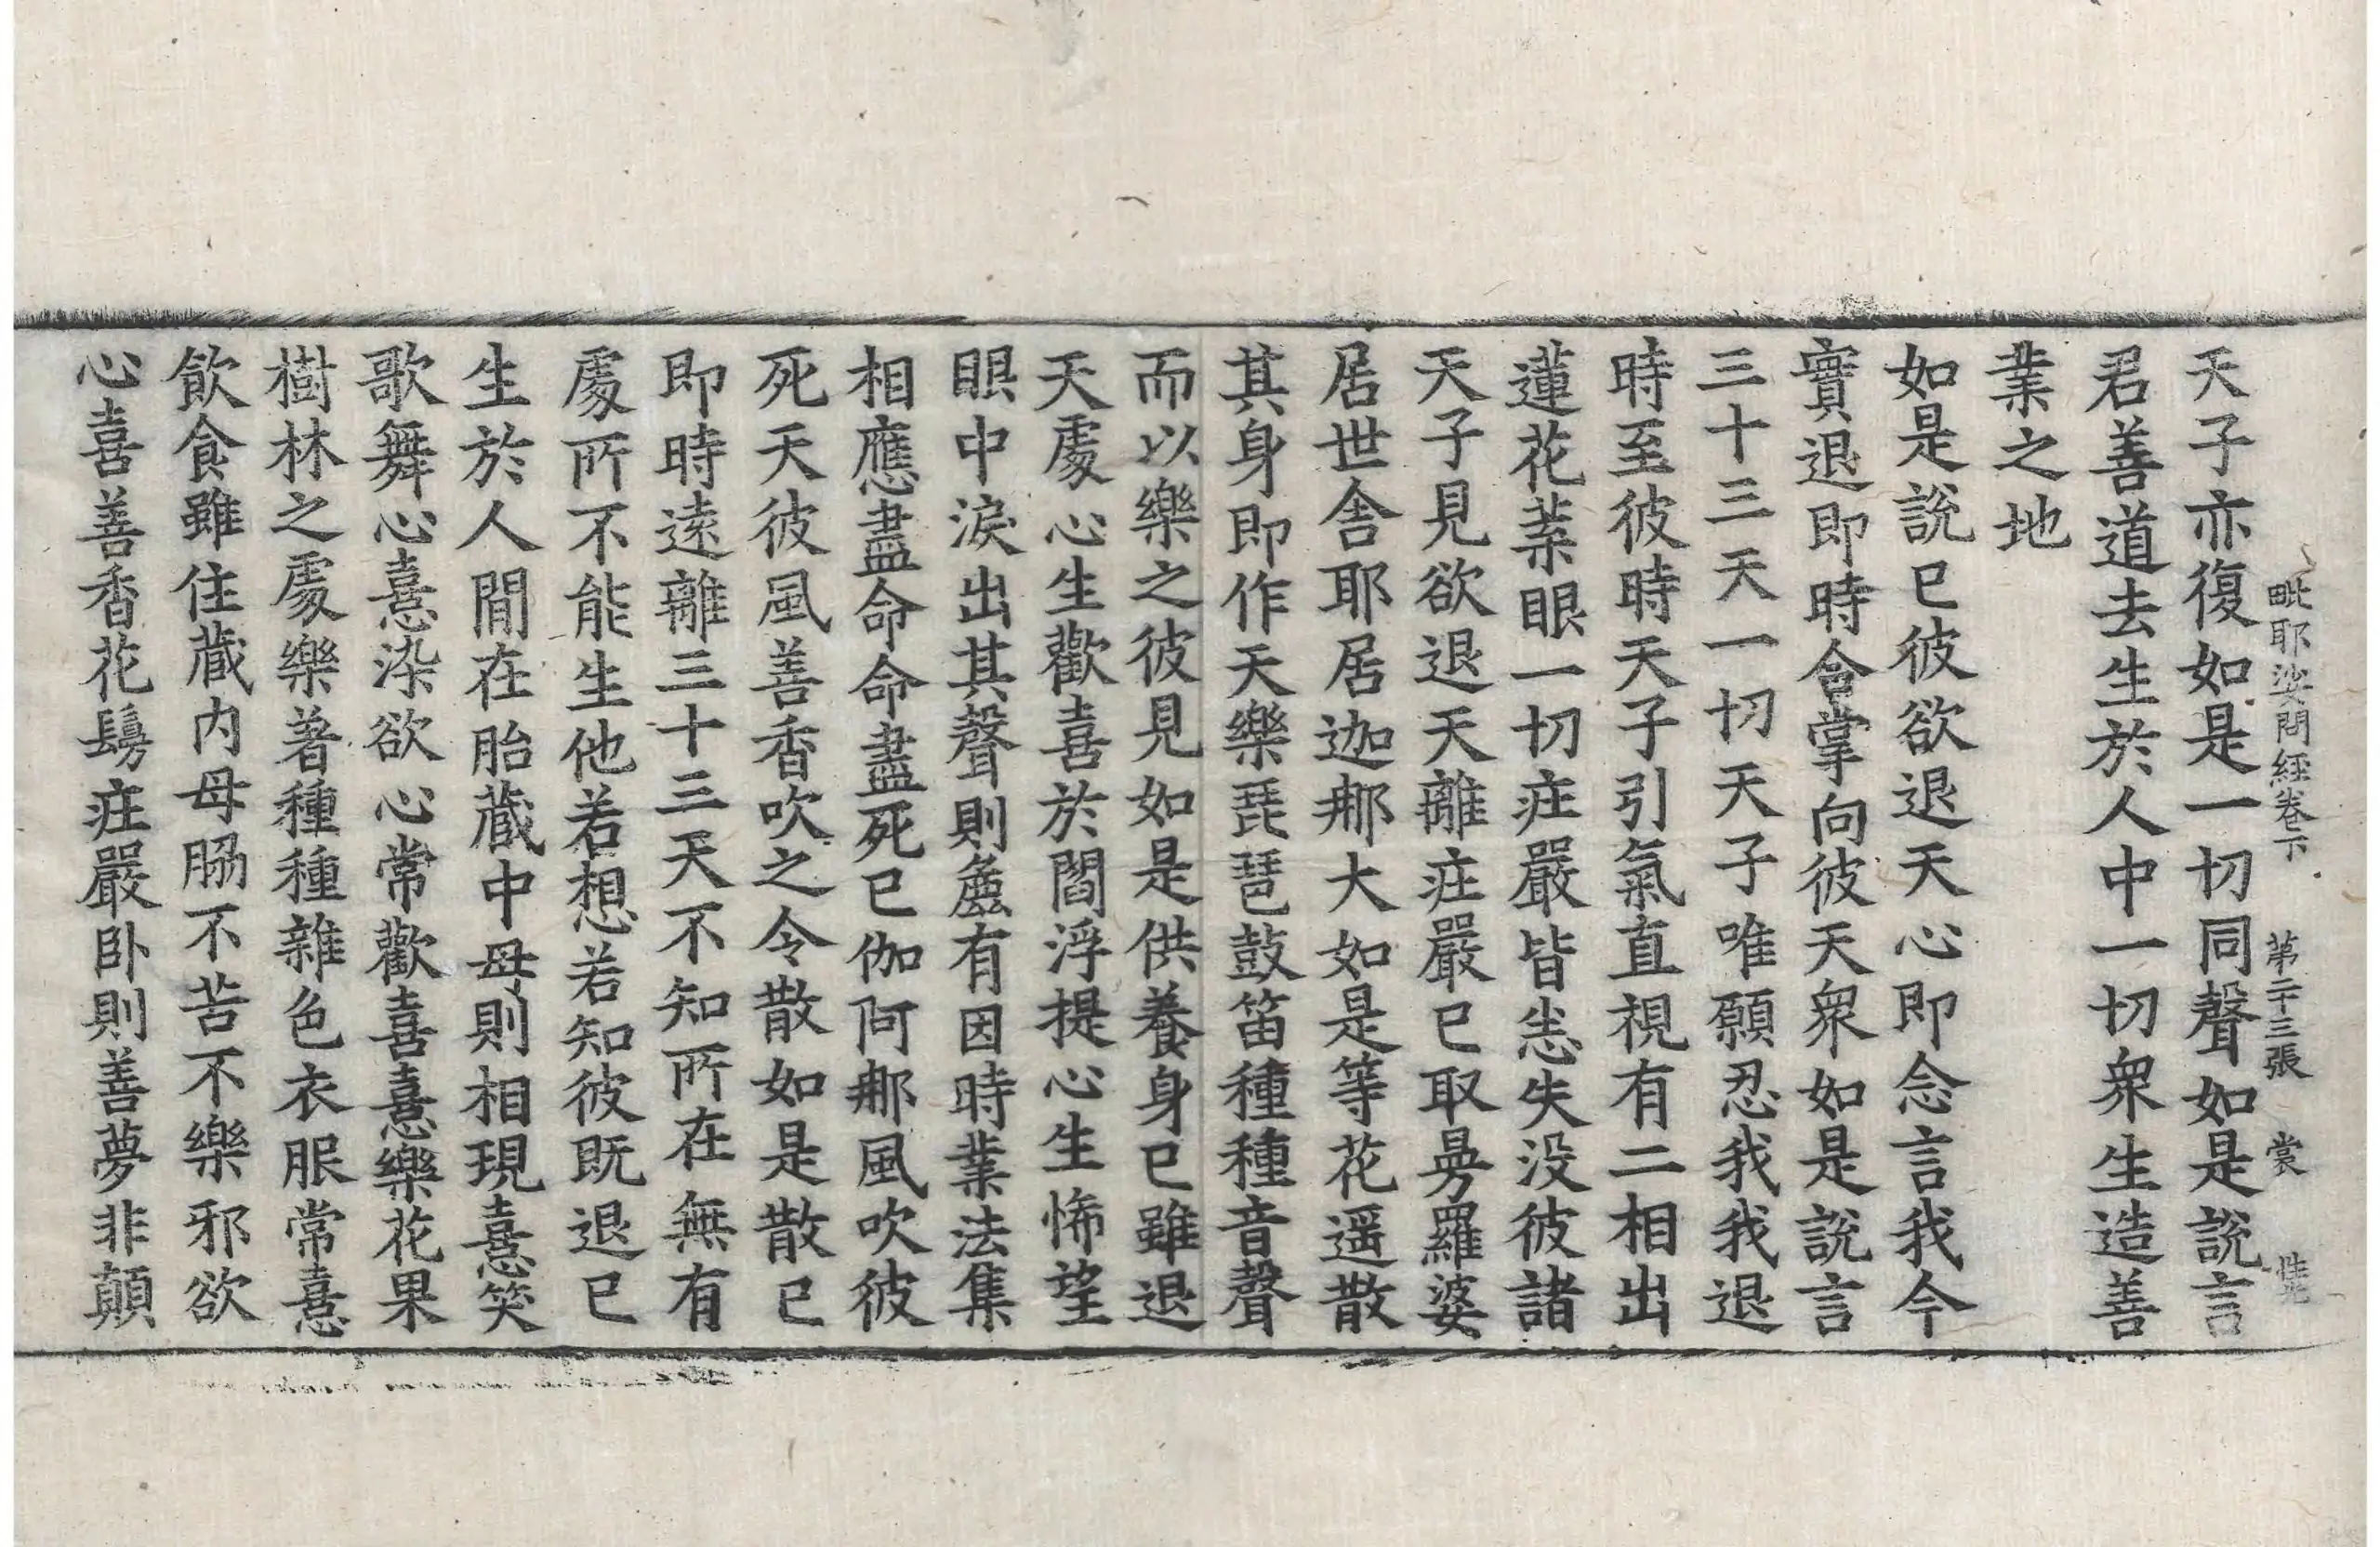 毗耶娑問經卷下　第二十三張　裳
天子亦復如是一切同聲如是說言
君善道去生於人中一切衆生造善
業之地
如是說已彼欲退天心即念言我今
實退即時合掌向彼天衆如是說言
三十三天一切天子唯願忍我我退
時至彼時天子引氣直視有二相出
蓮花葉眼一切莊嚴皆悉失没彼諸
天子見欲退天離莊嚴已取曼羅婆
居世舍耶居迦那大如是等花遥散
其身即作天樂琵琶鼓笛種種音聲
而以樂之彼見如是供養身已雖退
天處心生歡喜於閻浮提心生悕望
眼中淚出其聲則麁有因時業法集
相應盡命命盡死已伽阿那風吹彼
死天彼風善香吹之令散如是散已
即時遠離三十三天不知所在無有
處所不能生他若想若知彼既退已
生於人間在胎藏中母則相現憙笑
歌舞心憙染欲心常歡喜憙樂花果
樹林之處樂著種種雜色衣服常憙
飲食雖住藏内母脇不苦不樂邪欲
心喜善香花鬘莊嚴卧則善夢非顛